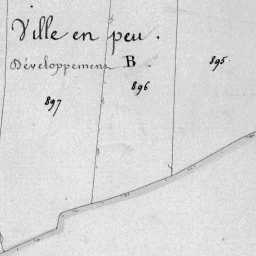 Ville en peu.
Développement B.
895.
896
897